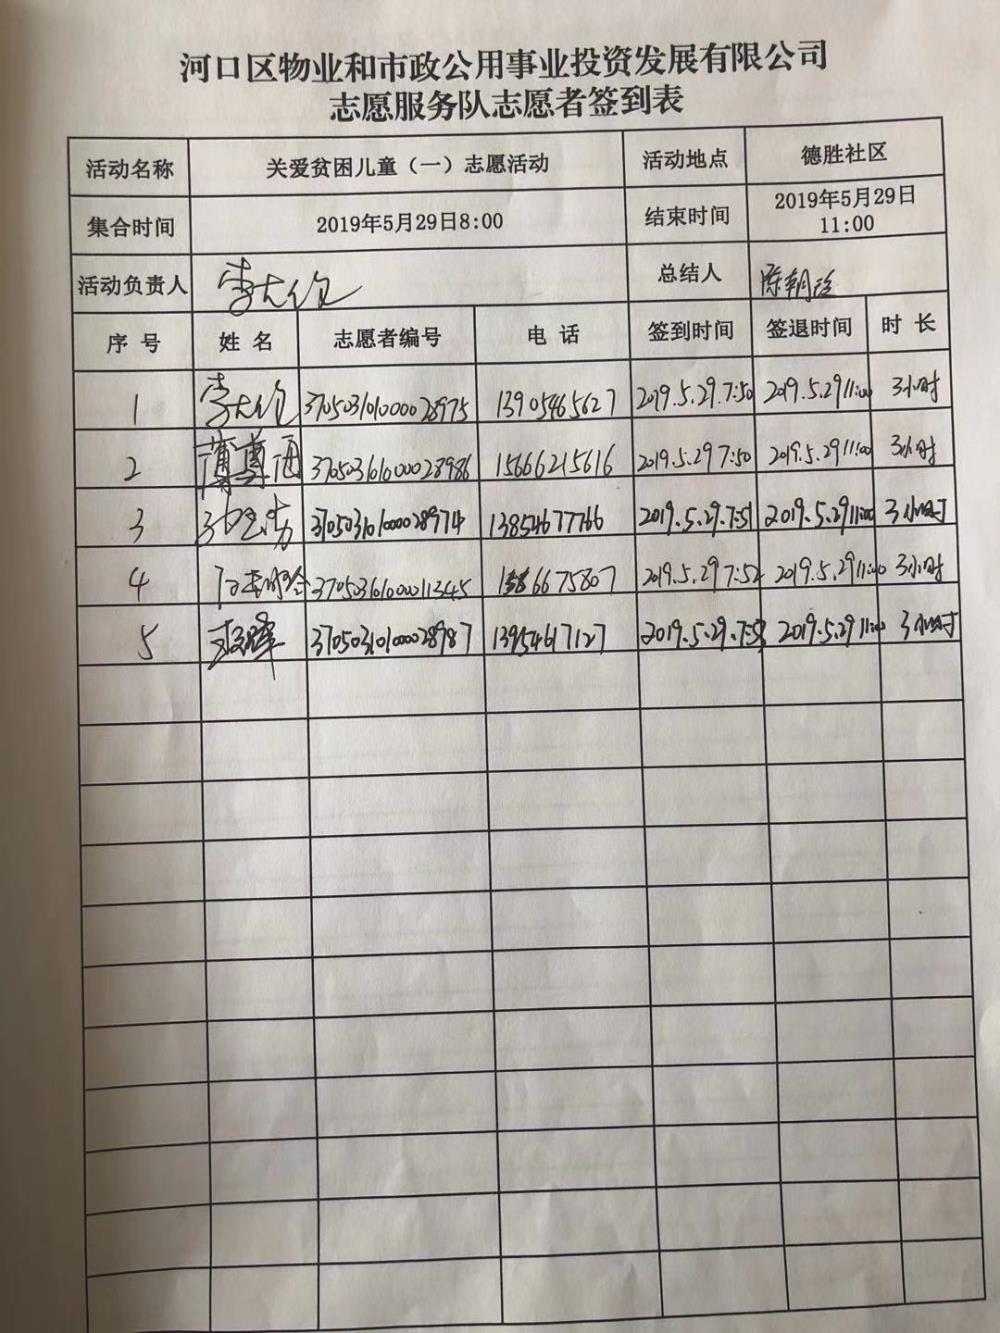 河口区物业和市政公用事业投资发展有限公司
志愿服务队志愿者签到表
活动名称 关爱贫困儿童（一）志愿活动 活动地点 德胜社区
集合时间 2019年5月29日8:00 结束时间 2019年5月29日 11:00
活动负责人 李大伦 总结人
序号 姓名 志愿者编号 电话 签到时间 签退时间 时长
1 李大伦 370503101000028975 13905465627 2019.5.29.7:50 2019.5.29 11:00 3小时
2 370503101000028986 15666215616 2019.5.29 7:50 2019.5.29 11:00 3小时
3 370503101000028974 13854677766 2019.5.29.7:51 2019.5.29 11:00 3小时
4 370503101000011345 2019.5.29 7:52 2019.5.29 11:00 3小时
5 370503101000028987 13954617127 2019.5.29.7:53 2019.5.29 11:00 3小时